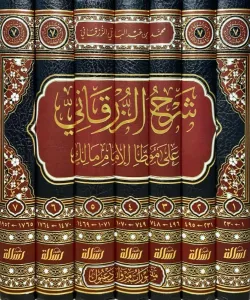 محمد بن عبد الباقي الزرقاني
شرح الزرقاني
على موطأ الإمام مالك
١ ٢ ٣ ٤ ٥ ٦ ٧
رسالة رسالة رسالة رسالة رسالة رسالة رسالة